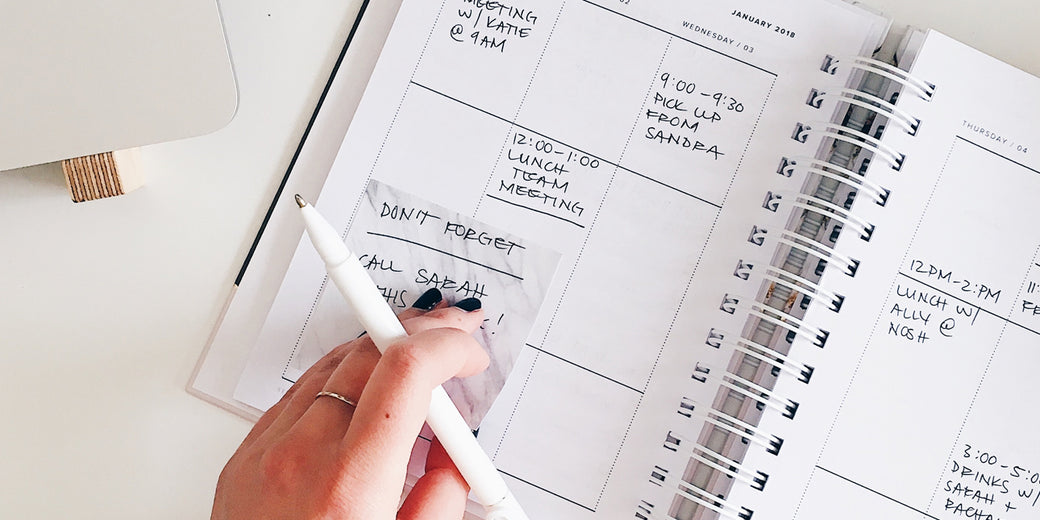 MEETING
W/ KATIE
@ 9AM
02
JANUARY 2018
WEDNESDAY / 03
9:00-9:30
PICK UP
FROM
SANDRA
12:00-1:00
LUNCH
TEAM
MEETING
DON'T FORGET
CALL SARAH
THIS
!
THURSDAY / 04
12PM-2:PM
LUNCH W/
ALLY @
NOSH
3:00-5:0
DRINKS W/
SARAH +